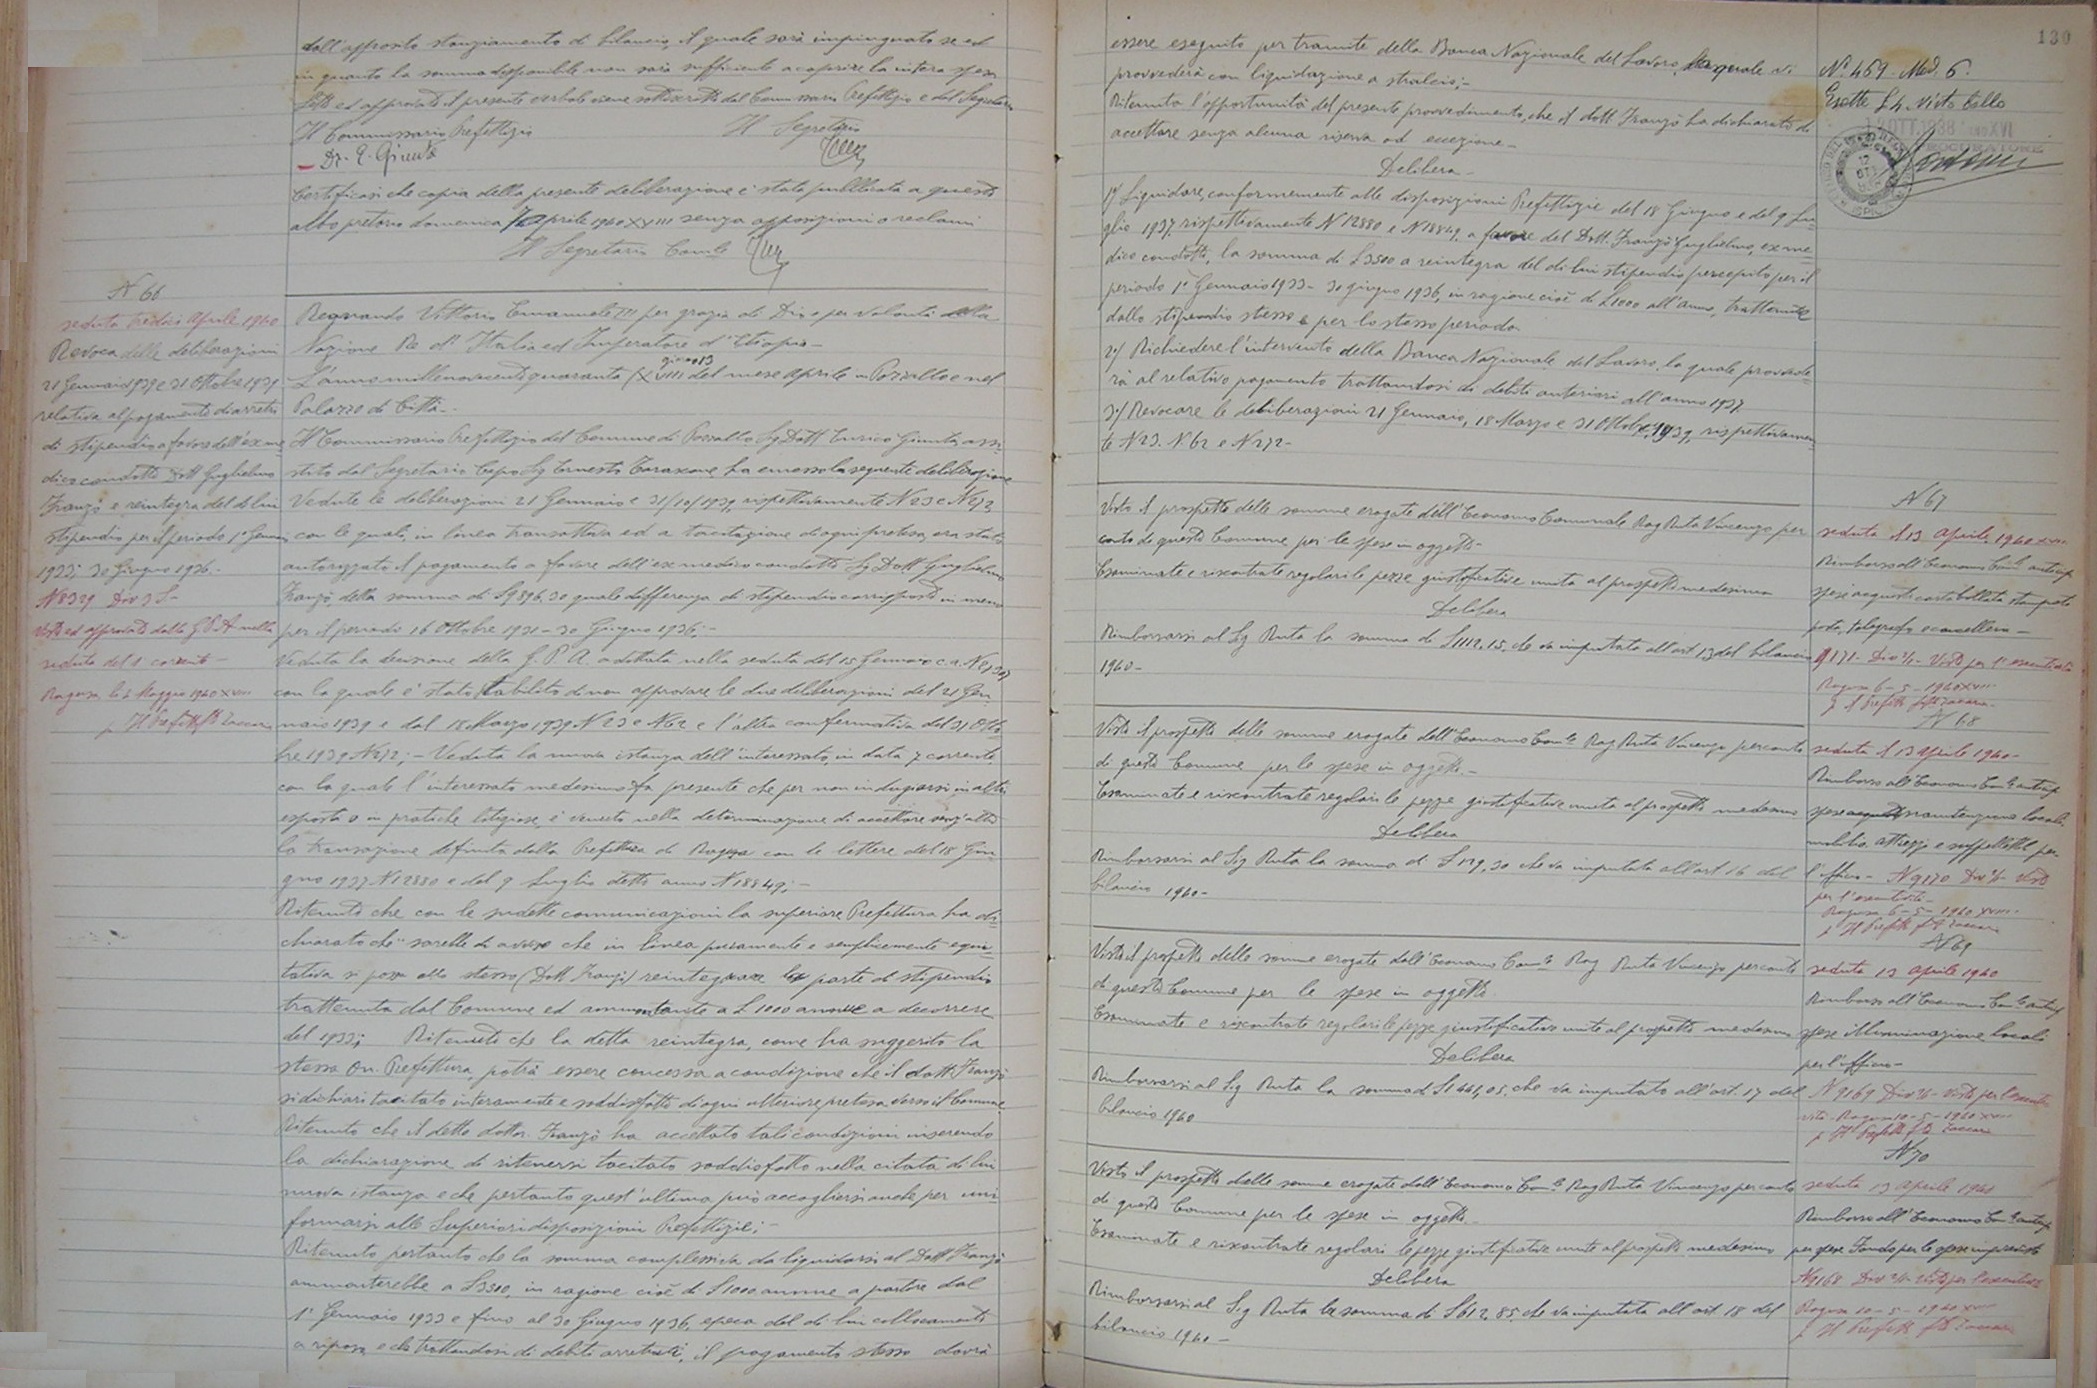 dall'apposito stanziamento di bilancio, il quale sarà impinguato se ed
in quanto la somma disponibile non sarà sufficiente a coprire la intera spesa
Letto ed approvato il presente verbale viene sottoscritto dal Commissario Prefettizio e dal Segretario
Il Commissario Prefettizio Il Segretario
Dr. E. Giunta
Certificasi che copia della presente deliberazione è stata pubblicata a questo
albo pretorio domenica 7 aprile 1940 XVIII senza opposizioni o reclami
Il Segretario Com.le
N 66
seduta tredici Aprile 1940
Revoca delle deliberazioni
21 Gennaio 1939 e 31 Ottobre 1939
relativa al pagamento di arretrati
di stipendio a favore dell'ex me
dico condotto Dott Guglielmo
Franzò e reintegra del di lui
stipendio per il periodo 1° Gennaio
1933; 30 Giugno 1936.-
N 8329 Div 3 S-
Visto ed approvato dalla G.P.A. nella
seduta del 1° corrente-
Ragusa li 2 Maggio 1940 XVIII
p. Il Prefetto Zaccaria
Regnando Vittorio Emanuele III per grazia di Dio e per volontà della
Nazione Re d'Italia ed Imperatore d'Etiopia-
giorno 13
L'anno millenovecentoquaranta (XVIII del mese Aprile in Pozzallo e nel
Palazzo di Città-
Il Commissario Prefettizio del Comune di Pozzallo Sig Dott Enrico Giunta assi
stito dal Segretario Capo Sig Ernesto Tarascone, ha emesso la seguente deliberazione
Vedute le deliberazioni 21 Gennaio e 31/10/1939, rispettivamente N 23 e N 272
con le quali, in linea transattiva ed a tacitazione di ogni pretesa, era stato
autorizzato il pagamento a favore dell'ex medico condotto Sig Dott Guglielmo
Franzò, della somma di £ 9896,30 quale differenza di stipendio corrisposto in meno
per il periodo 16 Ottobre 1931 - 30 Giugno 1936;-
Veduta la decisione della G.P.A. adottata nella seduta del 15 Gennaio c.a. N
con la quale è stato stabilito di non approvare le due deliberazioni del 21 Gen
naio 1939 e dal 18 Marzo 1939 N 23 e N 62 e l'altra confermativa del 31 Otto
bre 1939 N 272;- Veduta la nuova istanza dell'interessato, in data 7 corrente,
con la quale l'interessato medesimo fa presente che per non indugiarsi in altri
esposti o in pratiche litigiose, è venuto nella determinazione di accettare senz'altro
la transazione definita dalla Prefettura di Ragusa con le lettere del 18 Giu
gno 1937 N 12880 e del 9 Luglio detto anno N 18849;-
Ritenuto che con le sudette comunicazioni la superiore Prefettura ha di
chiarato che "sarebbe di avviso che in linea puramente e semplicemente equi
tativa si possa allo stesso (Dott Franzò) reintegrare la parte di stipendio
trattenuta dal Comune ed ammontante a £ 1000 annue a decorrere
del 1933; Ritenuto che la detta reintegra, come ha suggerito la
stessa On. Prefettura, potrà essere concessa a condizione che il dott. Franzò
si dichiari tacitato interamente e soddisfatto di ogni ulteriore pretesa verso il Comune
Ritenuto che il detto dottor Franzò ha accettato tali condizioni inserendo
la dichiarazione di ritenersi tacitato soddisfatto nella citata di lui
nuova istanza e che pertanto quest'ultima può accogliersi anche per uni
formarsi alle Superiori disposizioni Prefettizie;-
Ritenuto pertanto che la somma complessiva da liquidarsi al Dott Franzò
ammonterebbe a £ 3500, in ragione cioè di £ 1000 annue a partire dal
1° Gennaio 1933 e fino al 30 Giugno 1936, epoca del di lui collocamento
a riposo e che trattandosi di debito arretrato, il pagamento stesso dovrà
130
essere eseguito per tramite della Banca Nazionale del Lavoro, la quale vi
provvederà con liquidazione a stralcio;-
Ritenuta l'opportunità del presente provvedimento, che il dott. Franzò ha dichiarato di
accettare senza alcuna riserva od eccezione-
Delibera-
1°/ Liquidare, conformemente alle disposizioni Prefettizie del 18 Giugno e del 9 Lu
glio 1937, rispettivamente N 12880 e N 18849, a favore del Dott. Franzò Guglielmo, ex me
dico condotto, la somma di £ 3500 a reintegra del di lui stipendio percepito per il
periodo 1° Gennaio 1933 - 30 giugno 1936, in ragione cioè di £ 1000 all'anno, trattenute
dallo stipendio stesso e per lo stesso periodo.
2°/ Richiedere l'intervento della Banca Nazionale del Lavoro, la quale provvede
rà al relativo pagamento trattandosi di debito anteriori all'anno 1937.
3°/ Revocare le deliberazioni 21 Gennaio, 18 Marzo e 31 Ottobre 1939, rispettivamen
te N 23. N 62 e N 272-
N° 469. Mod. 6.
Esatte £ 4 Visto bollo
12 OTT. 1938 ANNO XVI
PROCURATORE
N 67
seduta il 13 Aprile 1940 XVIII
Rimborso all'Economo Com.le anticip
spese acquisto carta bollata, stampati
posta, telegrafo e cancelleria-
9171- Div 2/1- Visto per l'esecutività
Ragusa 6-5-1940 XVIII
p. Il Prefetto f/to Zaccaria
Visto il prospetto delle somme erogate dall'Economo Comunale Rag Ruta Vincenzo per
conto di questo Comune per le spese in oggetto-
Esaminate e riscontrate regolari le pezze giustificative unite al prospetto medesimo
Delibera
Rimborsarsi al Sig Ruta la somma di £ 1112,15, che va imputata all'art 13 del bilancio
1940-
N 68
seduta il 13 aprile 1940-
Rimborso all'Economo Com.le anticip
spese manutenzione locali,
mobilio, attrezzi e suppellettili per
l'ufficio- N 9170 Div 2/1- Visto
per l'esecutività-
Ragusa 6-5-1940 XVIII
p. Il Prefetto f/to Zaccaria
Visto il prospetto delle somme erogate dall'Economo Com.le Rag Ruta Vincenzo per conto
di questo Comune per le spese in oggetto-
Esaminate e riscontrate regolari le pezze giustificative unite al prospetto medesimo
Delibera
Rimborsarsi al Sig Ruta la somma di £ 129,30 che va imputata all'art 16 del
bilancio 1940-
N 69
seduta 13 aprile 1940
Rimborso all'Economo Com.le anticip
spese illuminazione locali
per l'ufficio-
N 9169 Div 2/1- Visto per l'esecuti
vità- Ragusa 10-5-1940 XVIII
p. Il Prefetto f/to Zaccaria
Visto il prospetto delle somme erogate dall'Economo Com.le Rag Ruta Vincenzo per conto
di questo Comune per le spese in oggetto
Esaminate e riscontrate regolari le pezze giustificative unite al prospetto medesimo
Delibera
Rimborsarsi al Sig Ruta la somma di £ 1441,05, che va imputato all'art. 17 del
bilancio 1940
N 70
seduta 13 Aprile 1940
Rimborso all'Economo Com.le anticip
per spese Fondo per le spese impreviste
N 9168 Div 2/1- Visto per l'esecutività
Ragusa 10-5-1940 XVIII
p. Il Prefetto f/to Zaccaria
Visto il prospetto delle somme erogate dall'Economo Com.le Rag Ruta Vincenzo per conto
di questo Comune per le spese in oggetto-
Esaminate e riscontrate regolari le pezze giustificative unite al prospetto medesimo
Delibera
Rimborsarsi al Sig Ruta la somma di £ 612,85 che va imputata all'art. 18 del
bilancio 1940-